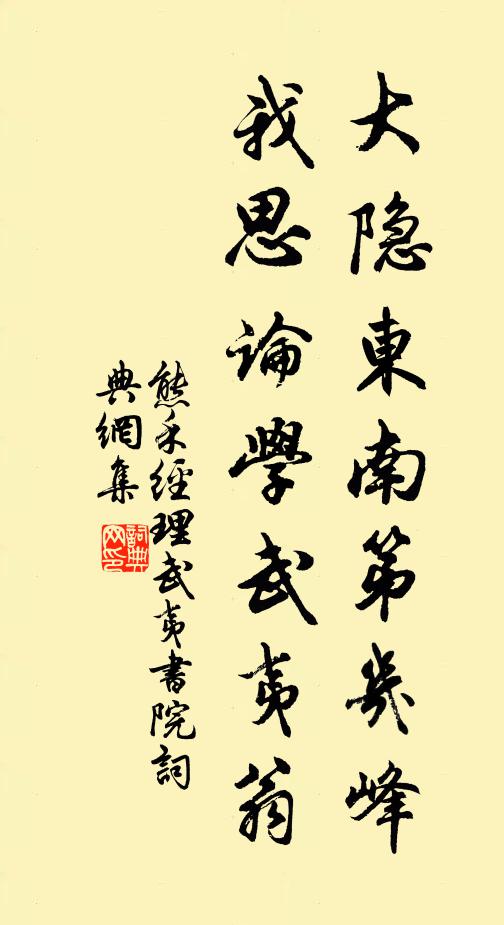 大隐東南第幾峰
我思論學武夷翁
熊禾經理武夷書院詞
典網集
詞典
网印